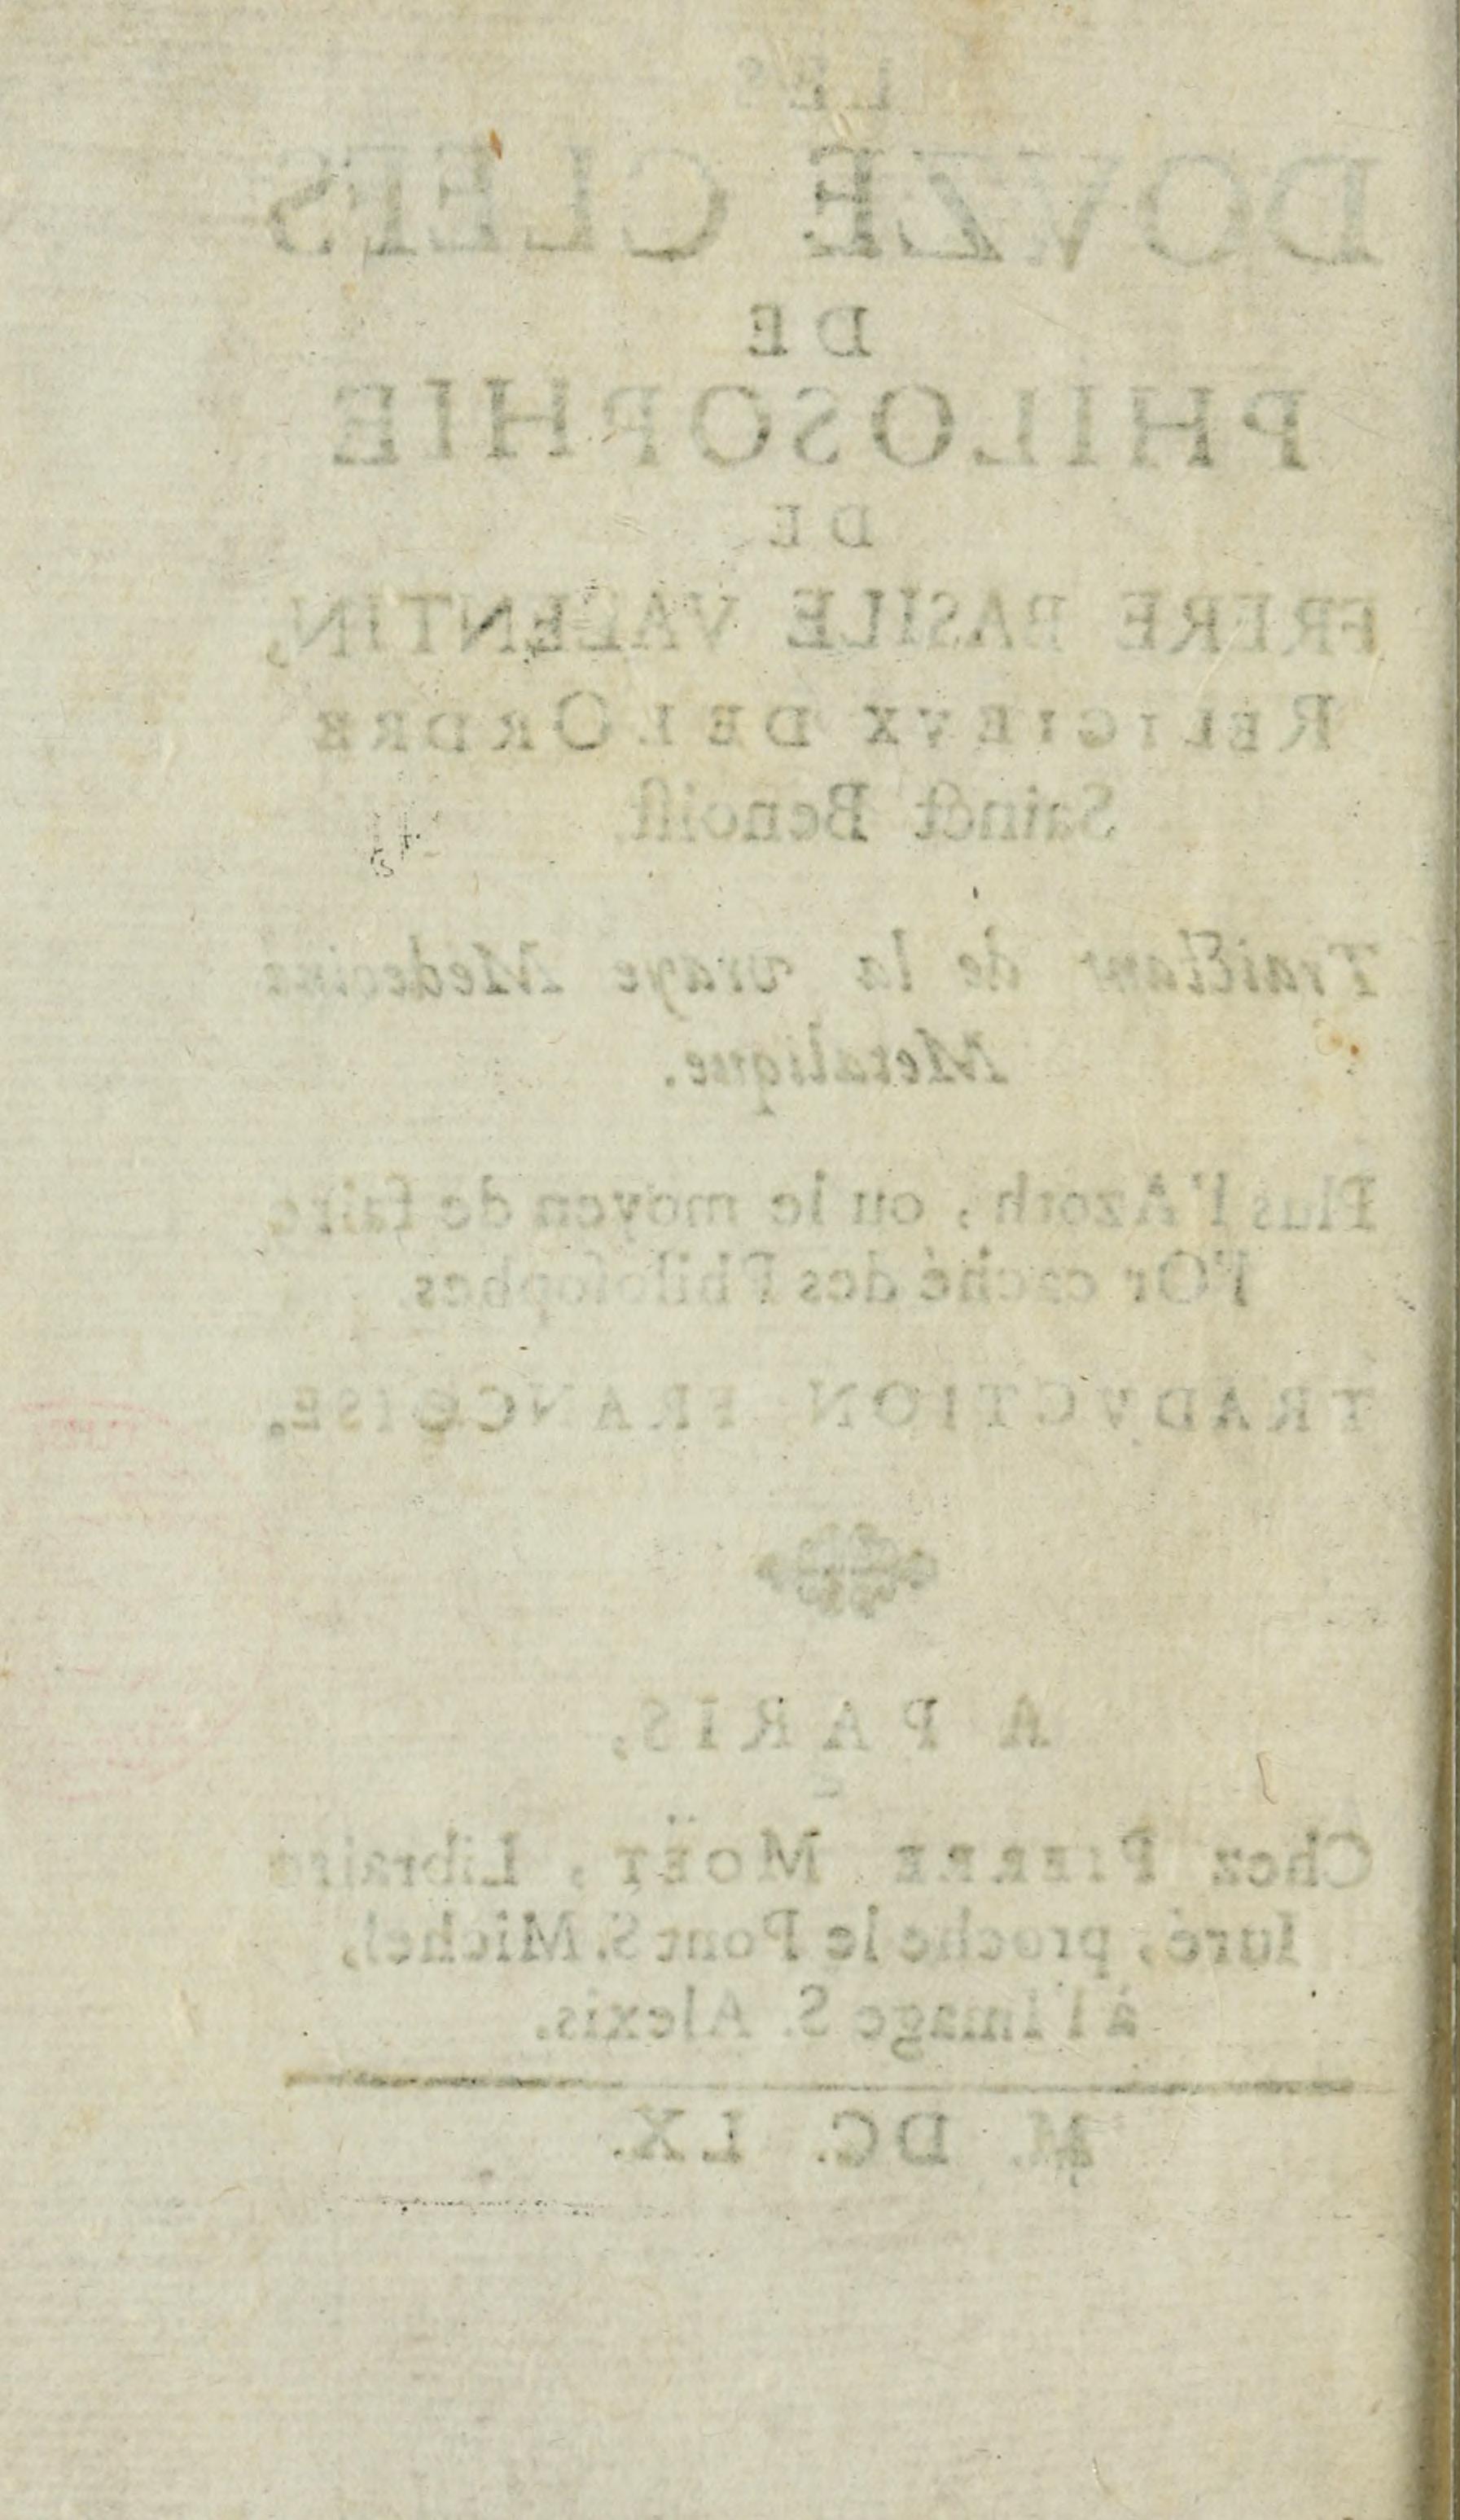 LES
DOVZE CLEFS
DE
PHILOSOPHIE
DE
FRERE BASILE VALENTIN,
RELIGIEVX DE L'ORDRE
Sainct Benoiſt
Traictant de la vraye Medecine
Metalique.
Plus l'Azoth, ou le moyen de faire
l'Or caché des Philoſophes
TRADVCTION FRANÇOISE.
A PARIS,
Chez PIERRE MOËT, Libraire
Iuré, proche le Pont S. Michel,
à l'Image S. Alexis.
M. DC. LX.